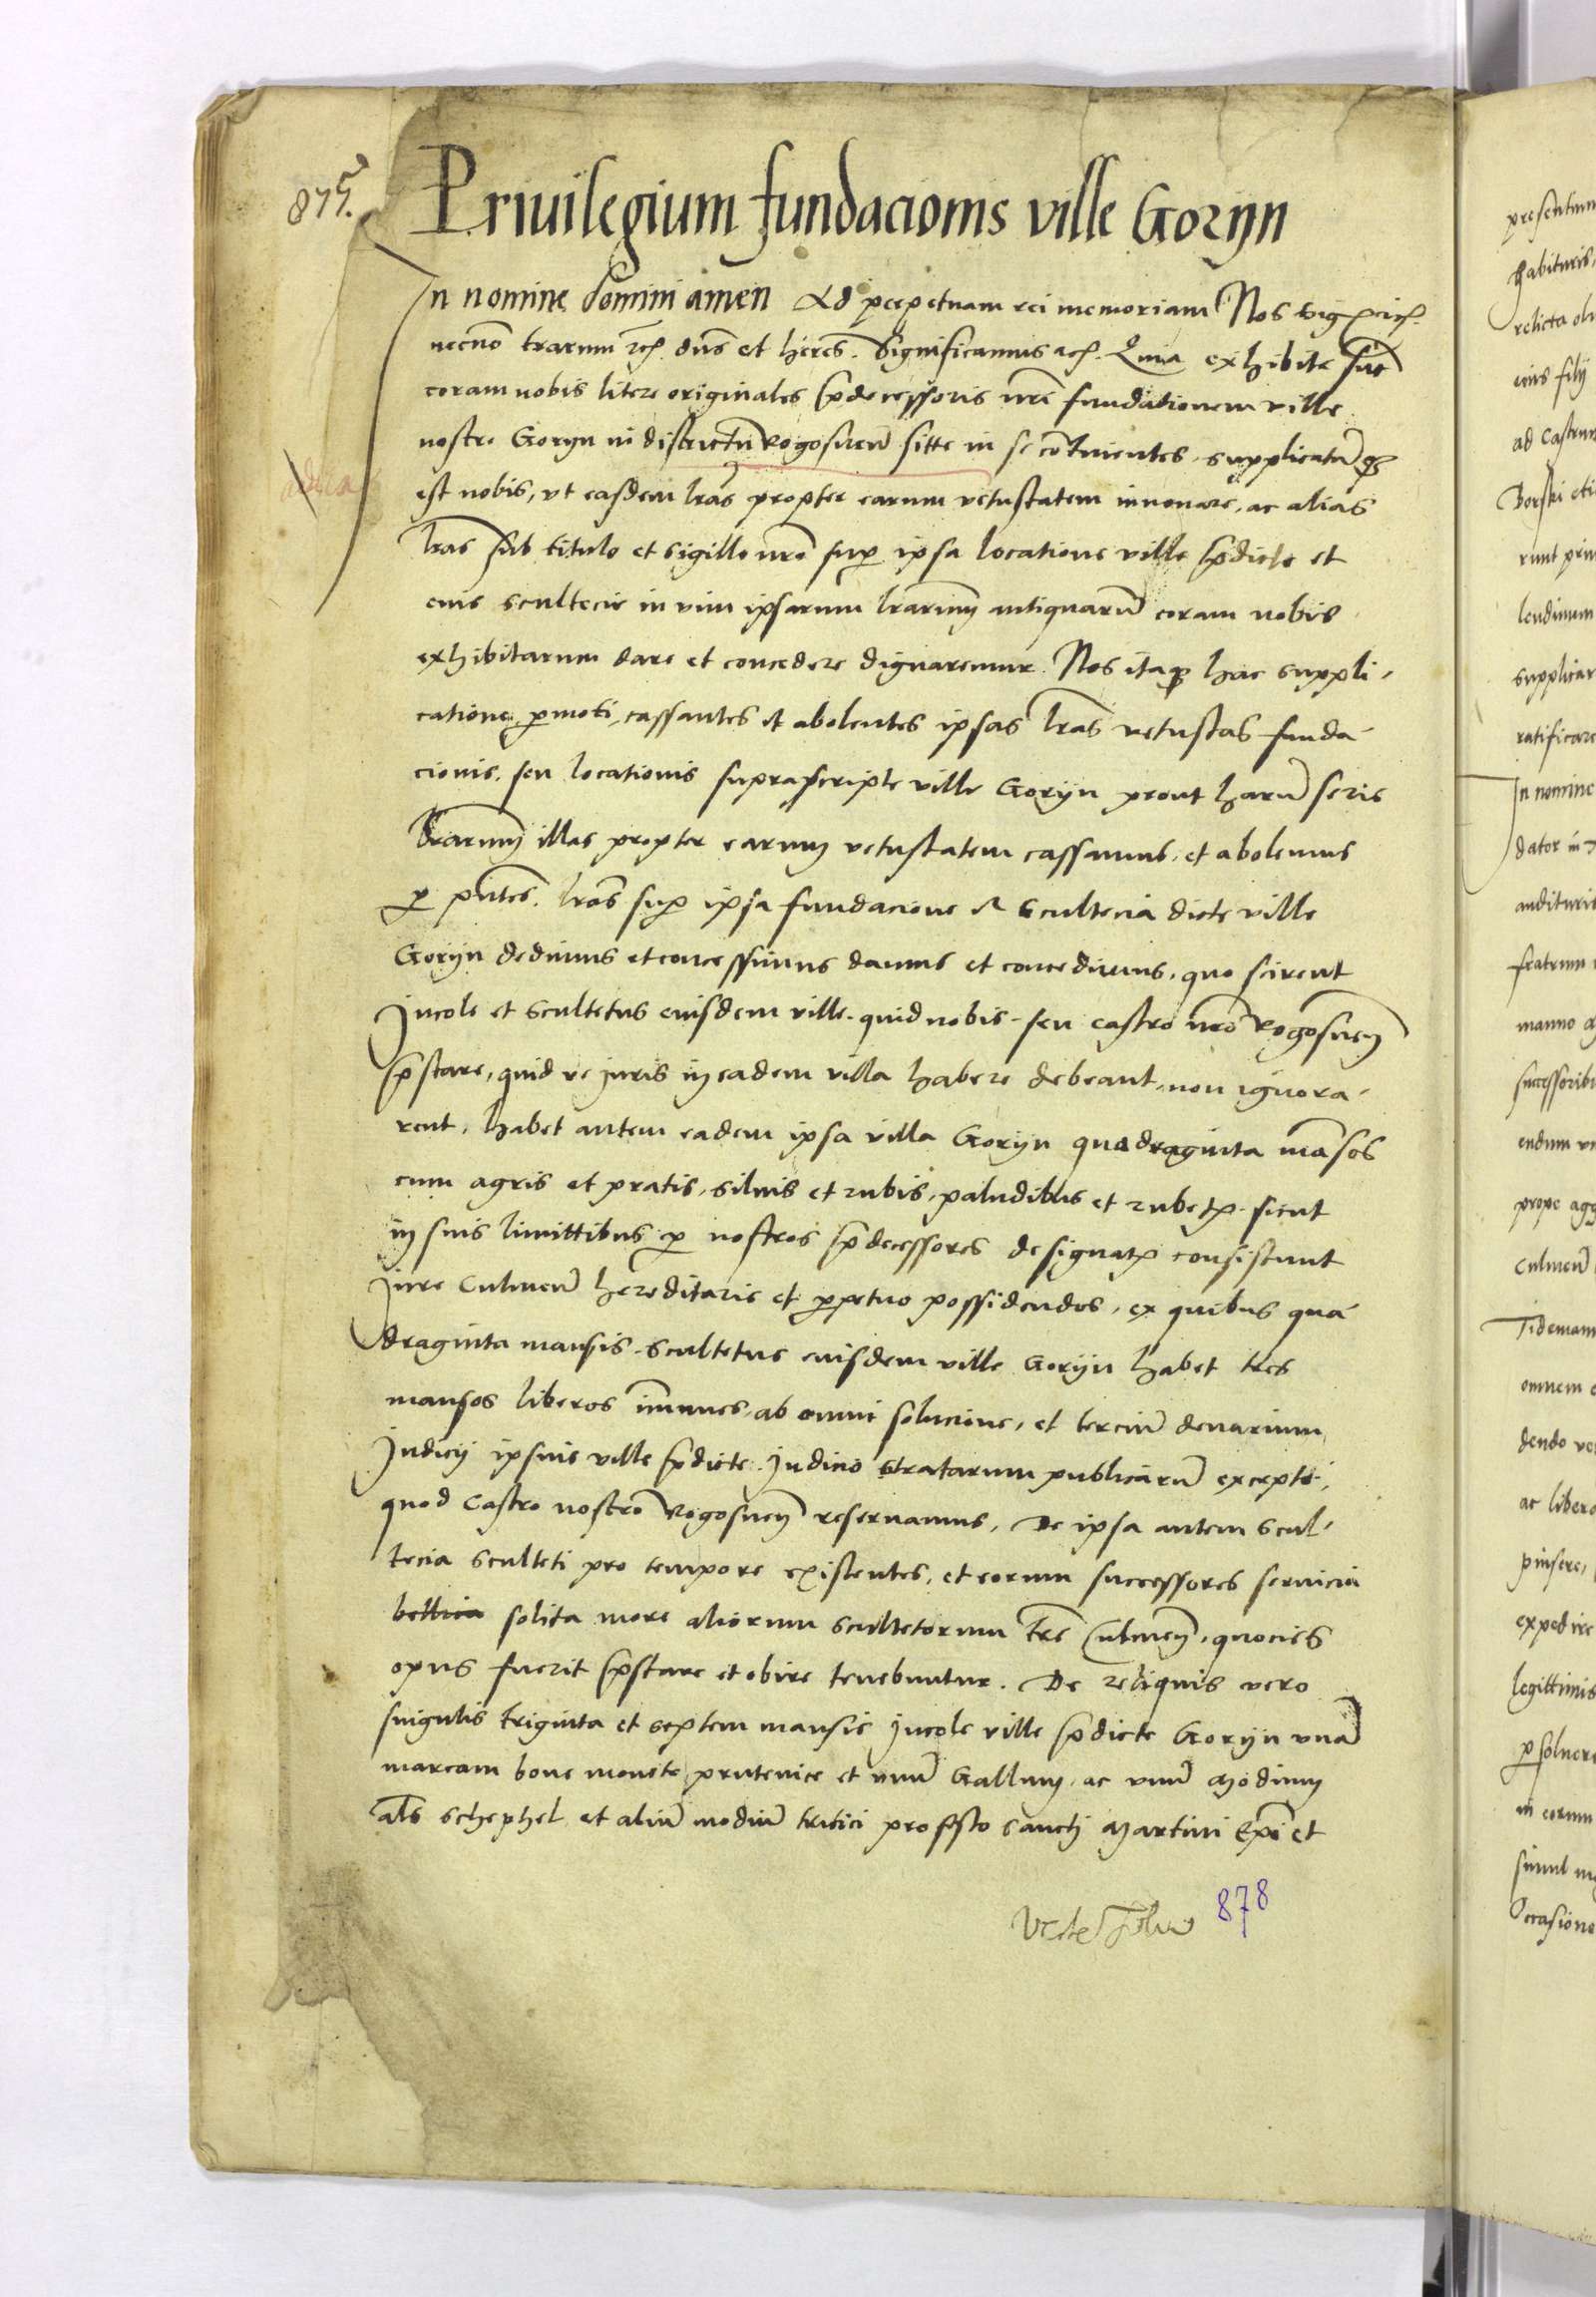 875.
Priuilegium fundacionis ville Goryn
In nomine domini amen Ad perpetuam rei memoriam Nos Sig
necno trarum dns et heres. Significamus Quia exhibite sut
coram nobis litere originales pdecessoris nri fundationem ville
nostre Goryn in districtu Rogosnen sitte in se continentes, supplicatuq
est nobis, vt easdem lras propter earum vetustatem innouare, ac alias
lras sub titulo et sigillo nro sup ipsa locatione ville pdicte et
eius scultecie in vim ipsarum lrarum antiquaru coram nobis
exhibitarum dare et concedere dignaremur. Nos itaq hac suppli-
catione pmoti, cassantes et abolentes ipsas lras vetustas funda-
cionis, seu locationis suprascripte ville Goryn prout haru serie
lrarum illas propter earum vetustatem cassamus, et abolemus
p pntes. lras sup ipsa fundacione et scultecia dicte ville
Goryn dedimus et concessimus damus et concedimus, quo scirent
Incole et scultetus eiusdem ville, quid nobis seu castro nro Rogosnen
pstare, quid ve Iuris in eadem villa habere debeant, non ignora-
rent, habet autem eadem ipsa villa Goryn quadraginta masos
cum agris et pratis, siluis et rubis, paludibus et rubet sicut
in suis limittibus p nostros pdecessores designat consistunt
Iure Culmen hereditarie et ppetuo possidendos, ex quibus qua-
draginta mansis scultetus eiusdem ville Goryn habet tres
mansos liberos immunes, ab omni solucione, et terciu denarium
Iudicij ipsius ville pdicte Iudicio stratarum publicaru excepto,
quod Castro nostro Rogosnen reseruamus, De ipsa autem scul-
tecia sculteti pro tempore existentes, et eorum successores seruicia
bellica solita more aliorum scultetorum tre Culmen, quocies
opus fuerit pstare et obire tenebuntur. De reliquis vero
singulis triginta et septem mansis Incole ville pdicte Goryn vna
marcam bone monete prutenice et vnu Gallum, ac vnu Modium
als schephel et aliu modiu tritici pro festo sancti Martini Epi et
878